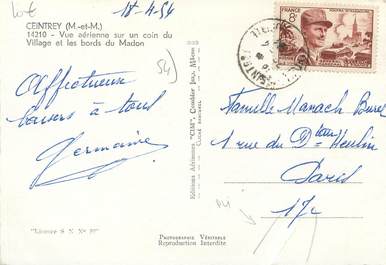 18-4-54
CEINTREY (M.-et-M.)
14210 - Vue aérienne sur un coin du
Village et les bords du Madon
54)
Affectueux
baisers à tous
Germaine
"Licence S N No 99"
Editions Aériennes "CIM", Combier Imp. Mâcon
PHOTOGRAPHIE VÉRITABLE
Reproduction Interdite
FRANCE
8F
Famille Manach
1 rue du Dteur Heulin
Paris
17e